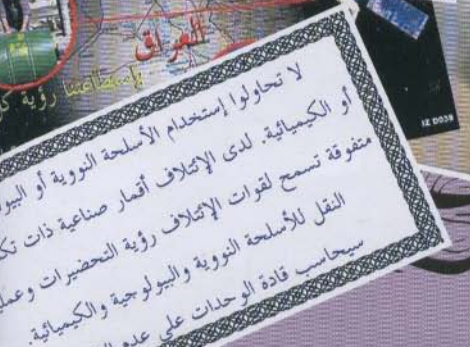 العراق
رؤية
لا تحاولوا إستخدام الأسلحة النووية أو
أو الكيميائية. لدى الإئتلاف أقمار صناعية ذات
متفوقة تسمح لقوات الإئتلاف رؤية التحضيرات
النقل للأسلحة النووية والبيولوجية والكيميائية.
سيحاسب قادة الوحدات على عدم